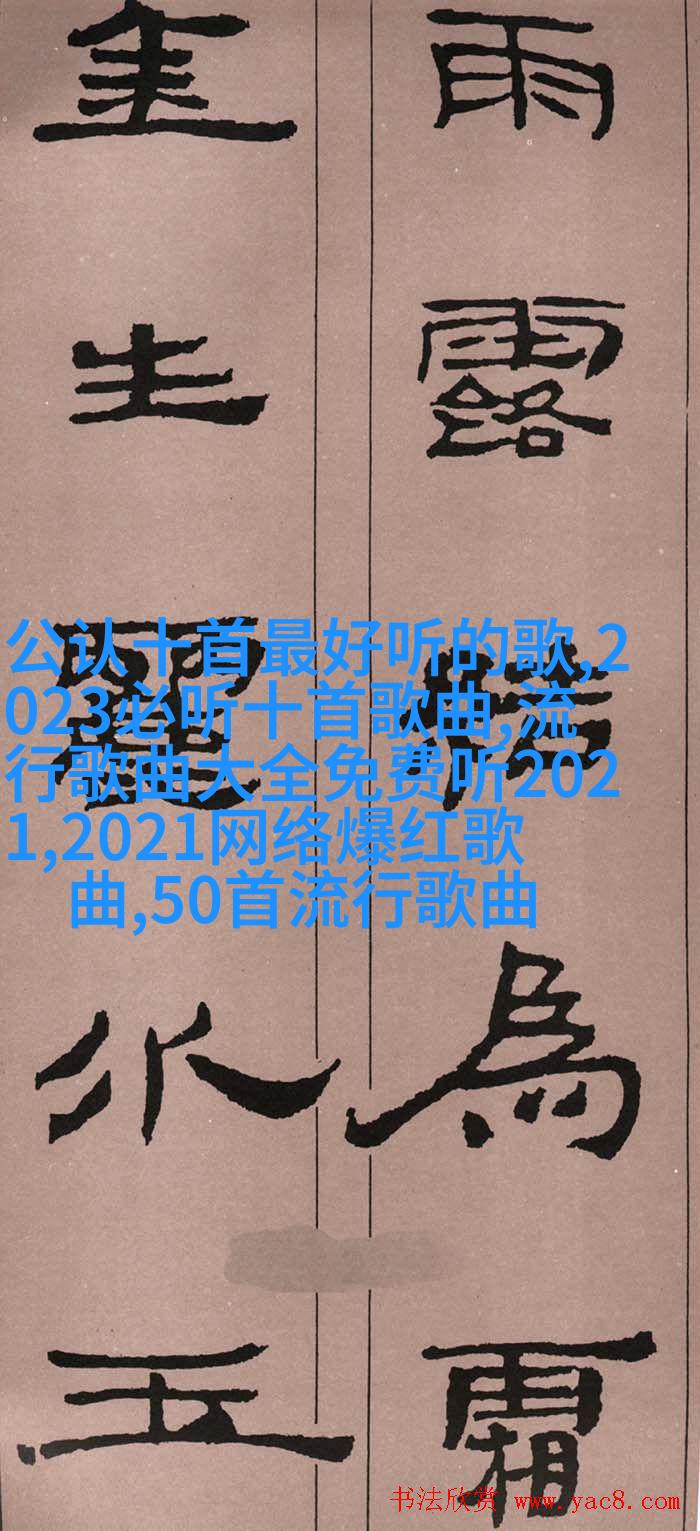 雨露結為霜
金生麗水玉
公认十首最好听的歌,2
023必听十首歌曲,流
行歌曲大全免费听202
1,2021网络爆红歌
曲,50首流行歌曲
书法欣赏 www.yac8.com